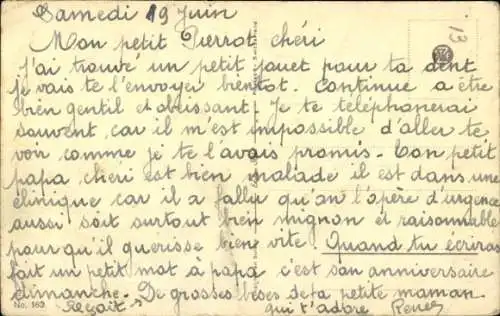 Samedi 19 Juin
13
Mon petit Pierrot chéri
j'ai trouvé un petit jouet pour ta dent
je vais te l'envoyer bientot. Continue a être
bien gentil et obeissant. Je te téléphonerai
souvent, car il m'est impossible d'aller te
voir comme je te l'avais promis. Ton petit
papa cheri est bien malade il est dans une
clinique car il a fallu qu'on l'opère d'urgence
aussi soit surtout bien mignon et raisonnable
pour qu'il guerisse bien vite. Quand tu écriras
fait un petit mot à papa c'est son anniversaire
dimanche. De grosses bises de ta petite maman
No. 163
qui t'adore Renée